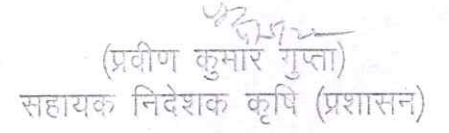 (प्रवीण कुमार गुप्ता)
सहायक निदेशक कृषि (प्रशासन)